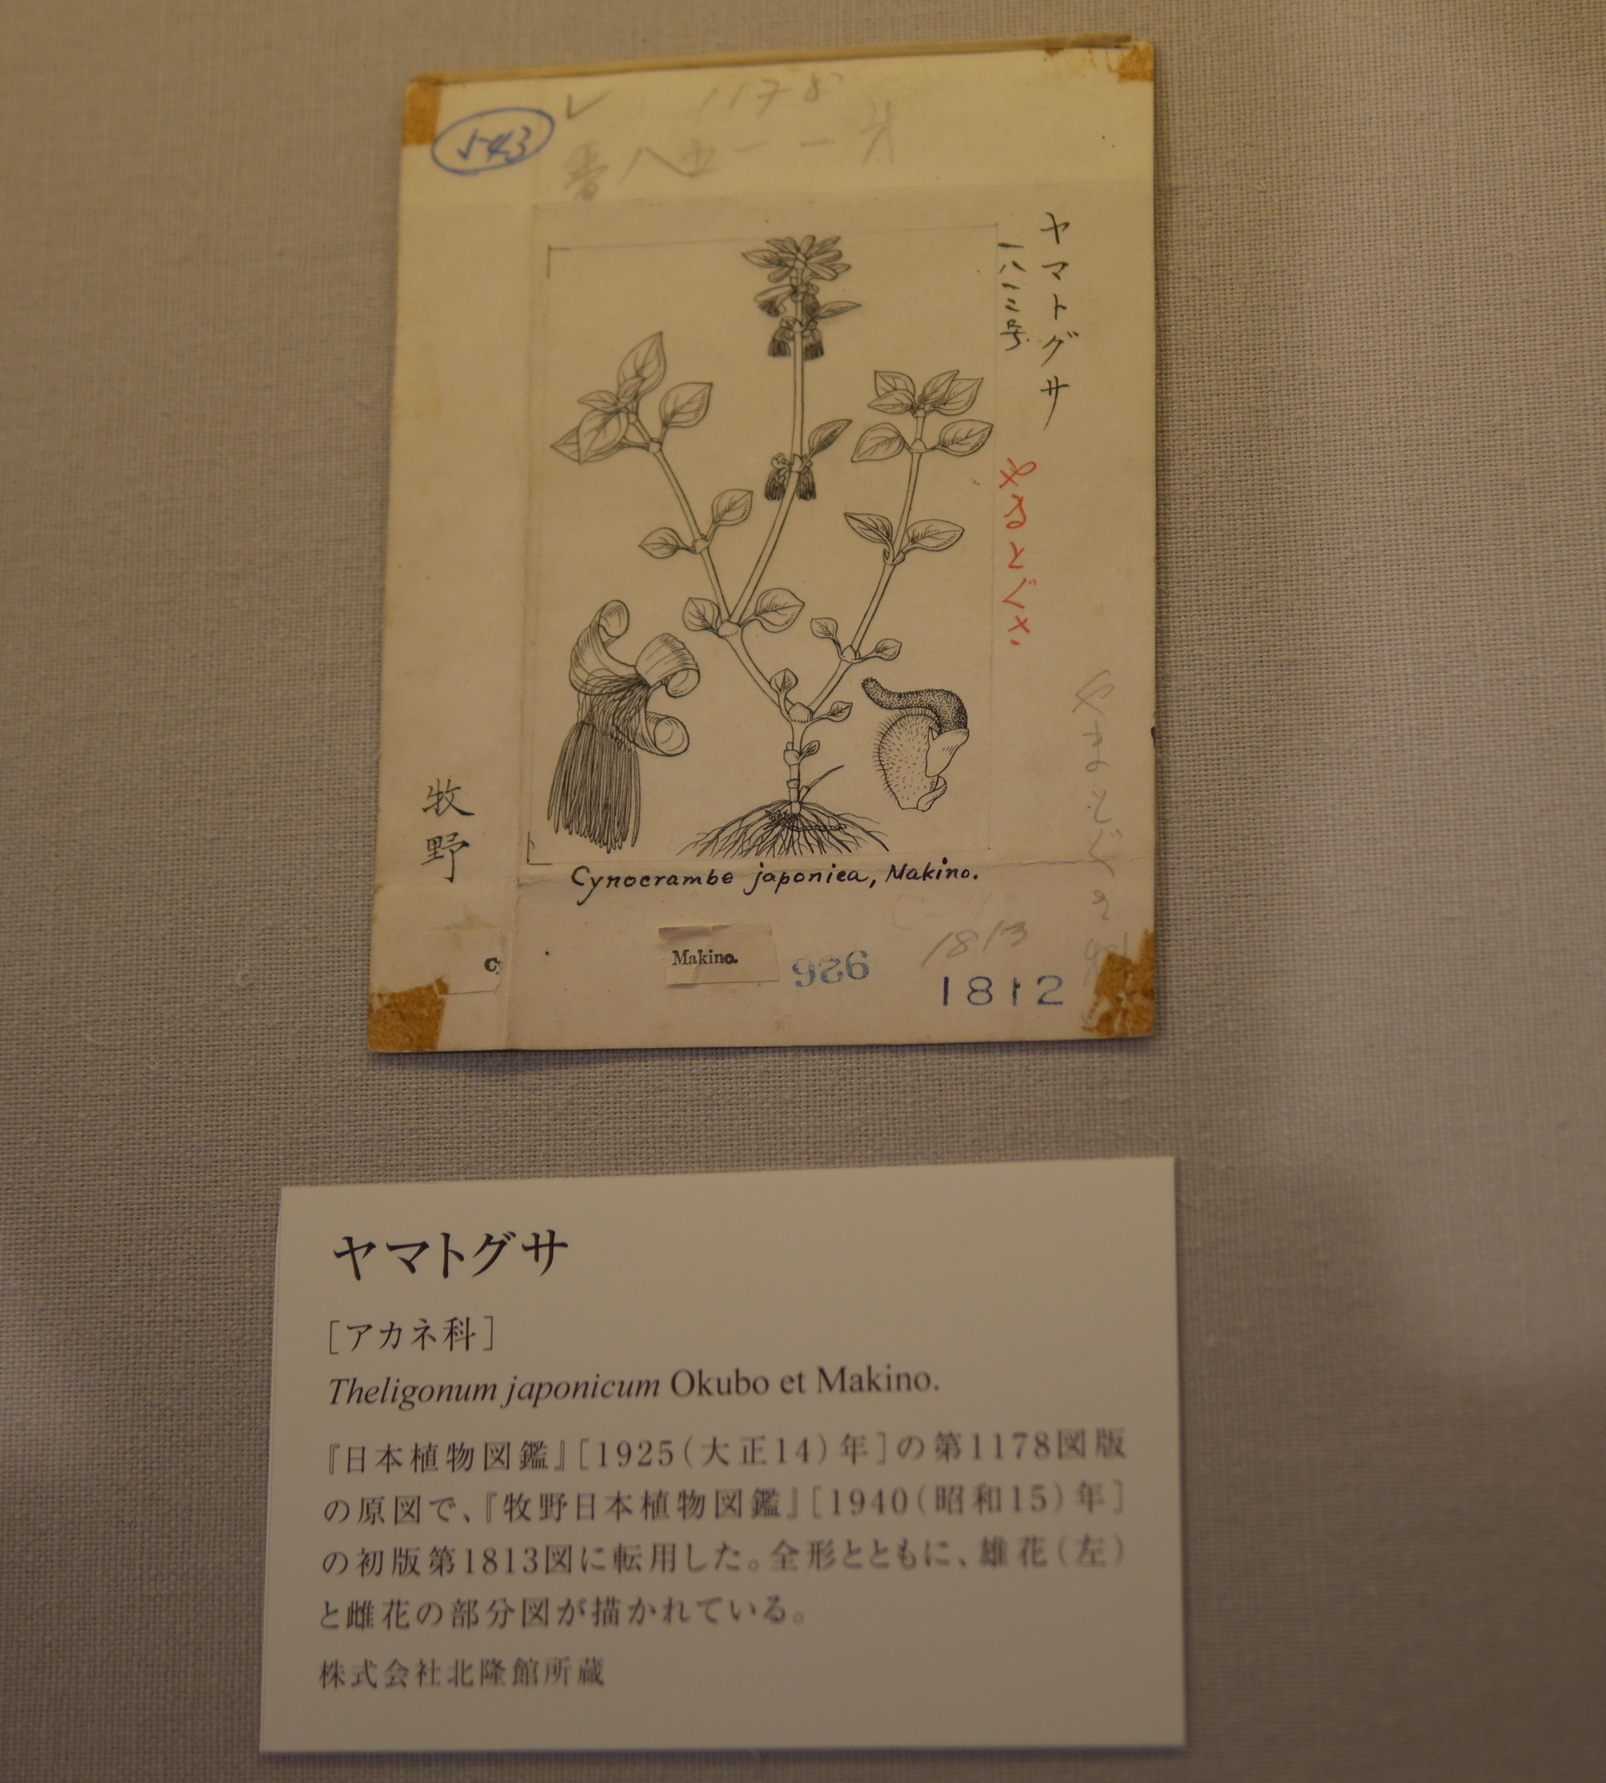 543
1178
番八五一一第
ヤマトグサ
一八一二号
やまとぐさ
やまとぐさ
牧野
Cynocrambe japonica, Makino.
Makino.
926
1813
1812
ヤマトグサ
[アカネ科]
Theligonum japonicum Okubo et Makino.
『日本植物図鑑』[1925(大正14)年]の第1178図版
の原図で、『牧野日本植物図鑑』[1940(昭和15)年]
の初版第1813図に転用した。全形とともに、雄花(左)
と雌花の部分図が描かれている。
株式会社北隆館所蔵